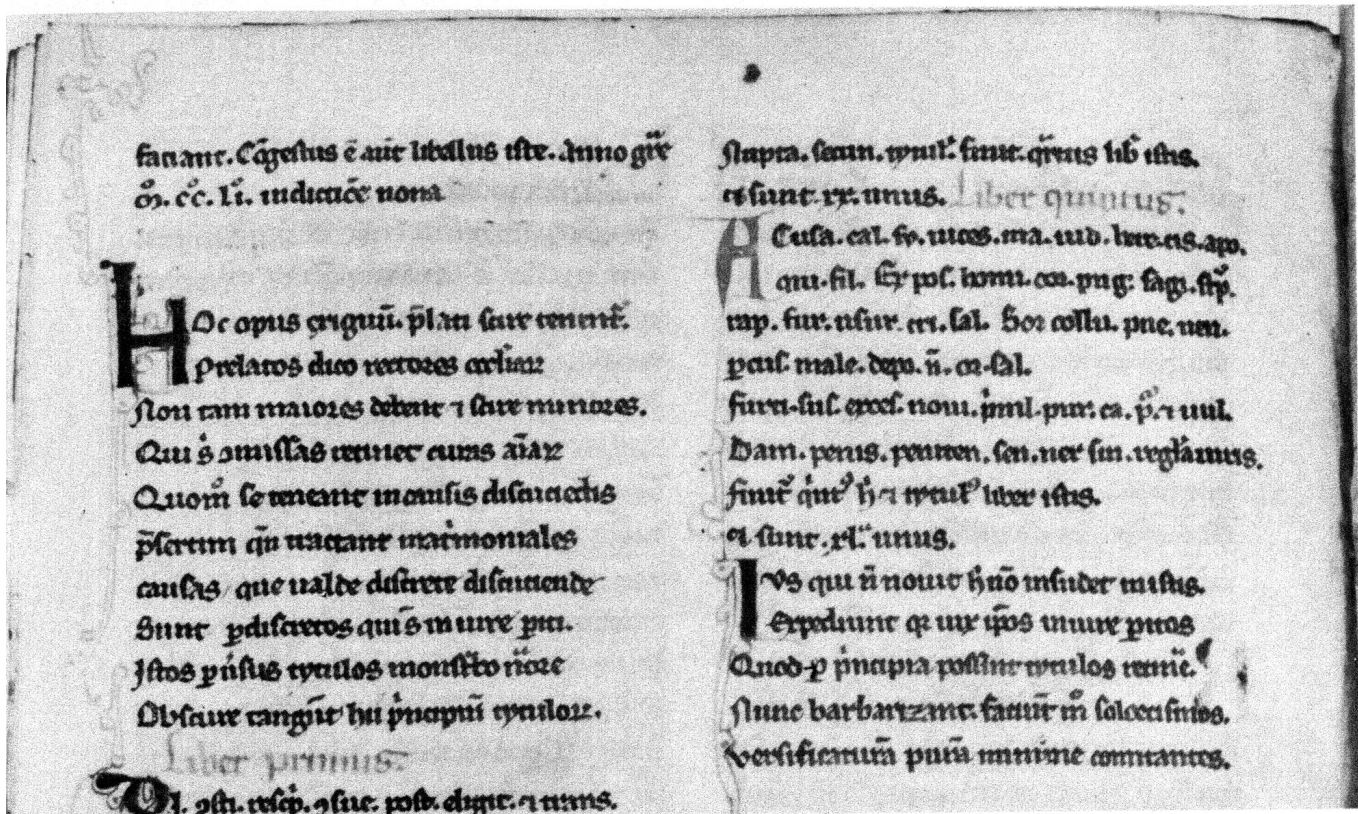 faciant. Cōgestus ē aūt libellus iste. Anno grē
M̊. c̊c. lͥ. indictiōe nona
HOc opus exiguū. p̄lati scire tenent᷑.
Prelatos dico rectores eccl̄iaꝝ
Non tam maiores debent ⁊ scire minores.
Qui s̄ omissas retinet curas aīaꝝ
Quom̊ se teneant in causis discuciēdis
p̄sertim qn̄ tractant matͥmoniales
causas / que ualde discrete discuciende
Sunt ꝑdiscretos qui s̄ in iure ꝑiti.
Istos ꝑ ūsus tytulos monst̄to
Obscure tangūt hii pͥncipiū tytuloꝝ.
Liber primus.
ꝯsti. rescͥp. ꝯsue. post. eligit. ⁊ trans.
Nupta. secun. tytul᷑. finit. qͥrtus lib̄ istis.
⁊ sunt. xx. unus. Liber quintus.
ACusa. cal. sy. iudes. ma. iud. here. cis. apo.
qui. fil. Expos. homi. cor. pug. sagi. stp̄.
rap. fur. usur. cri. fal. Sor collu. pue. neu.
ꝑcus. male. depo. n̄. cor. sal.
furei. sus. exces. noui. pͥuil. pur. ca. ⁊ uul.
Dam. penis. peniten. sen. uer sin. reglāmus.
finit᷑ qͥnt᷒ ⁊ tytul᷑ liber istis.
⁊ sunt. xl. unus.
IVs qui n̄ nouit nō insudet in istis.
Expediunt qr uix ip̄os in iure ꝑitos
Quod ꝑ pͥncipia possint tytulos retinē.
Nunc barbarizant. faciūt m̊ soloecismos.
versificaturā purā minime comitantes.